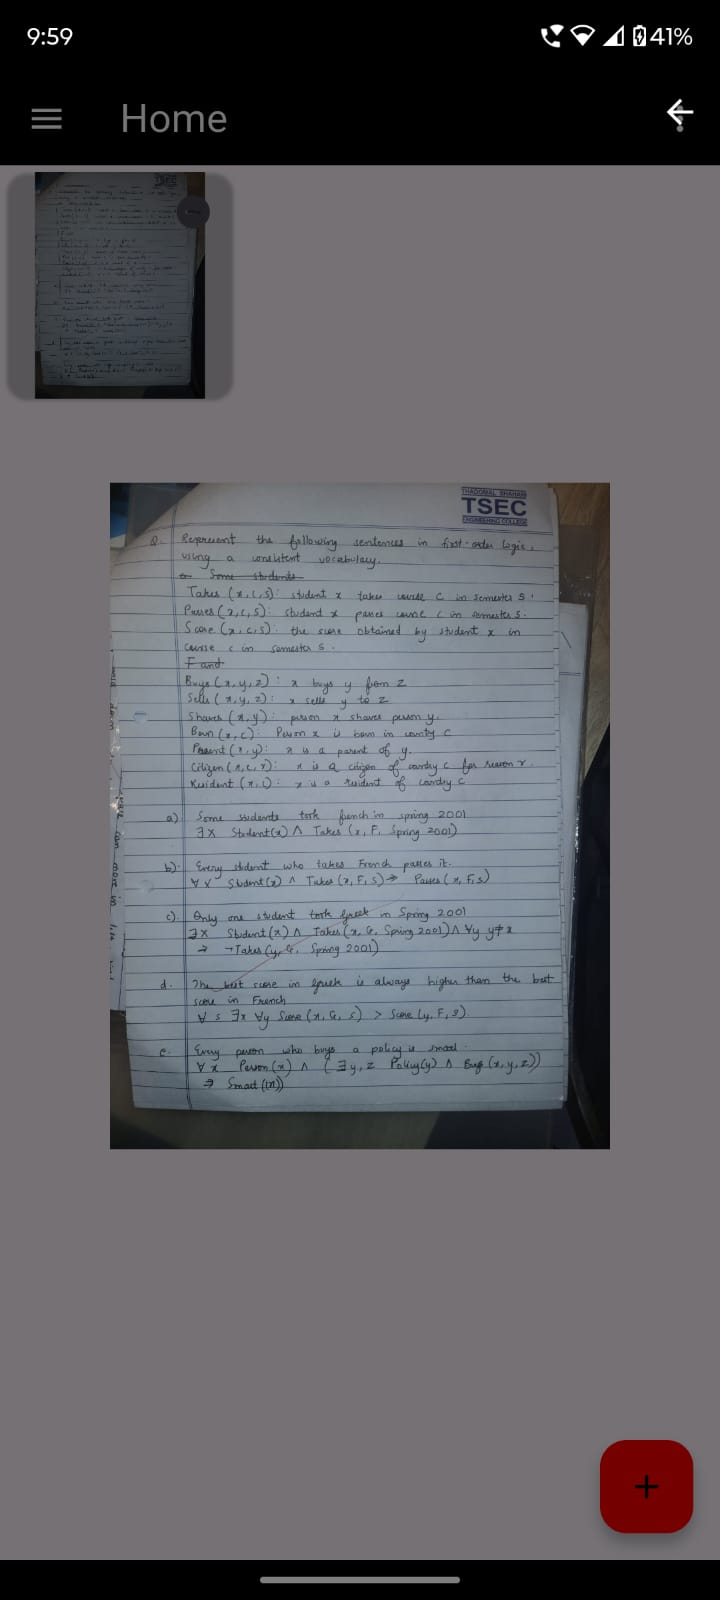 9:59
41%
Home
THADOMAL SHAHANI
TSEC
ENGINEERING COLLEGE
Q. Represent the following sentences in first-order logic,
using a consistent vocabulary.
Some students
Takes (x, c, s): student x takes course c in semester s.
Passes (x, c, s): student x passes course c in semester s.
Score (x, c, s): the score obtained by student x in
course c in semester s.
F and
Buys (x, y, z): x buys y from z
Sells (x, y, z): x sells y to z
Shaves (x, y): person x shaves person y.
Born (x, c): Person x is born in country c
Parent (x, y): x is a parent of y.
Citizen (x, c, r): x is a citizen of country c for reason r.
Resident (x, c): x is a resident of country c
a) Some students took french in spring 2001
∃x Student(x) ∧ Takes (x, F, Spring 2001)
b) Every student who takes French passes it.
∀x Student(x) ∧ Takes (x, F, s) → Passes (x, F, s)
c) Only one student took Greek in Spring 2001
∃x Student (x) ∧ Takes (x, G, Spring 2001) ∧ ∀y y≠x
→ ¬Takes (y, G, Spring 2001)
d. The best score in Greek is always higher than the best
score in French
∀s ∃x ∀y Score (x, G, s) > Score (y, F, s)
e. Every person who buys a policy is smart.
∀x Person (x) ∧ (∃y, z Policy(y) ∧ Buys (x, y, z))
⇒ Smart (x))